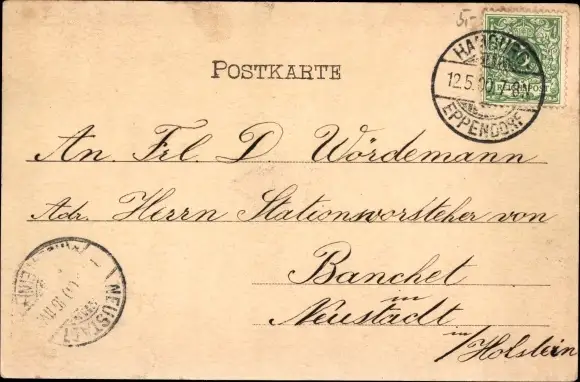 5,-
HAMBURG
12.5.00.
EPPENDORF
REICHSPOST
POSTKARTE
An. Frl. D. Wördemann
Adr. Herrn Stationsvorsteher von
Banchet
in
Neustadt
in/Holstein
NEUSTADT